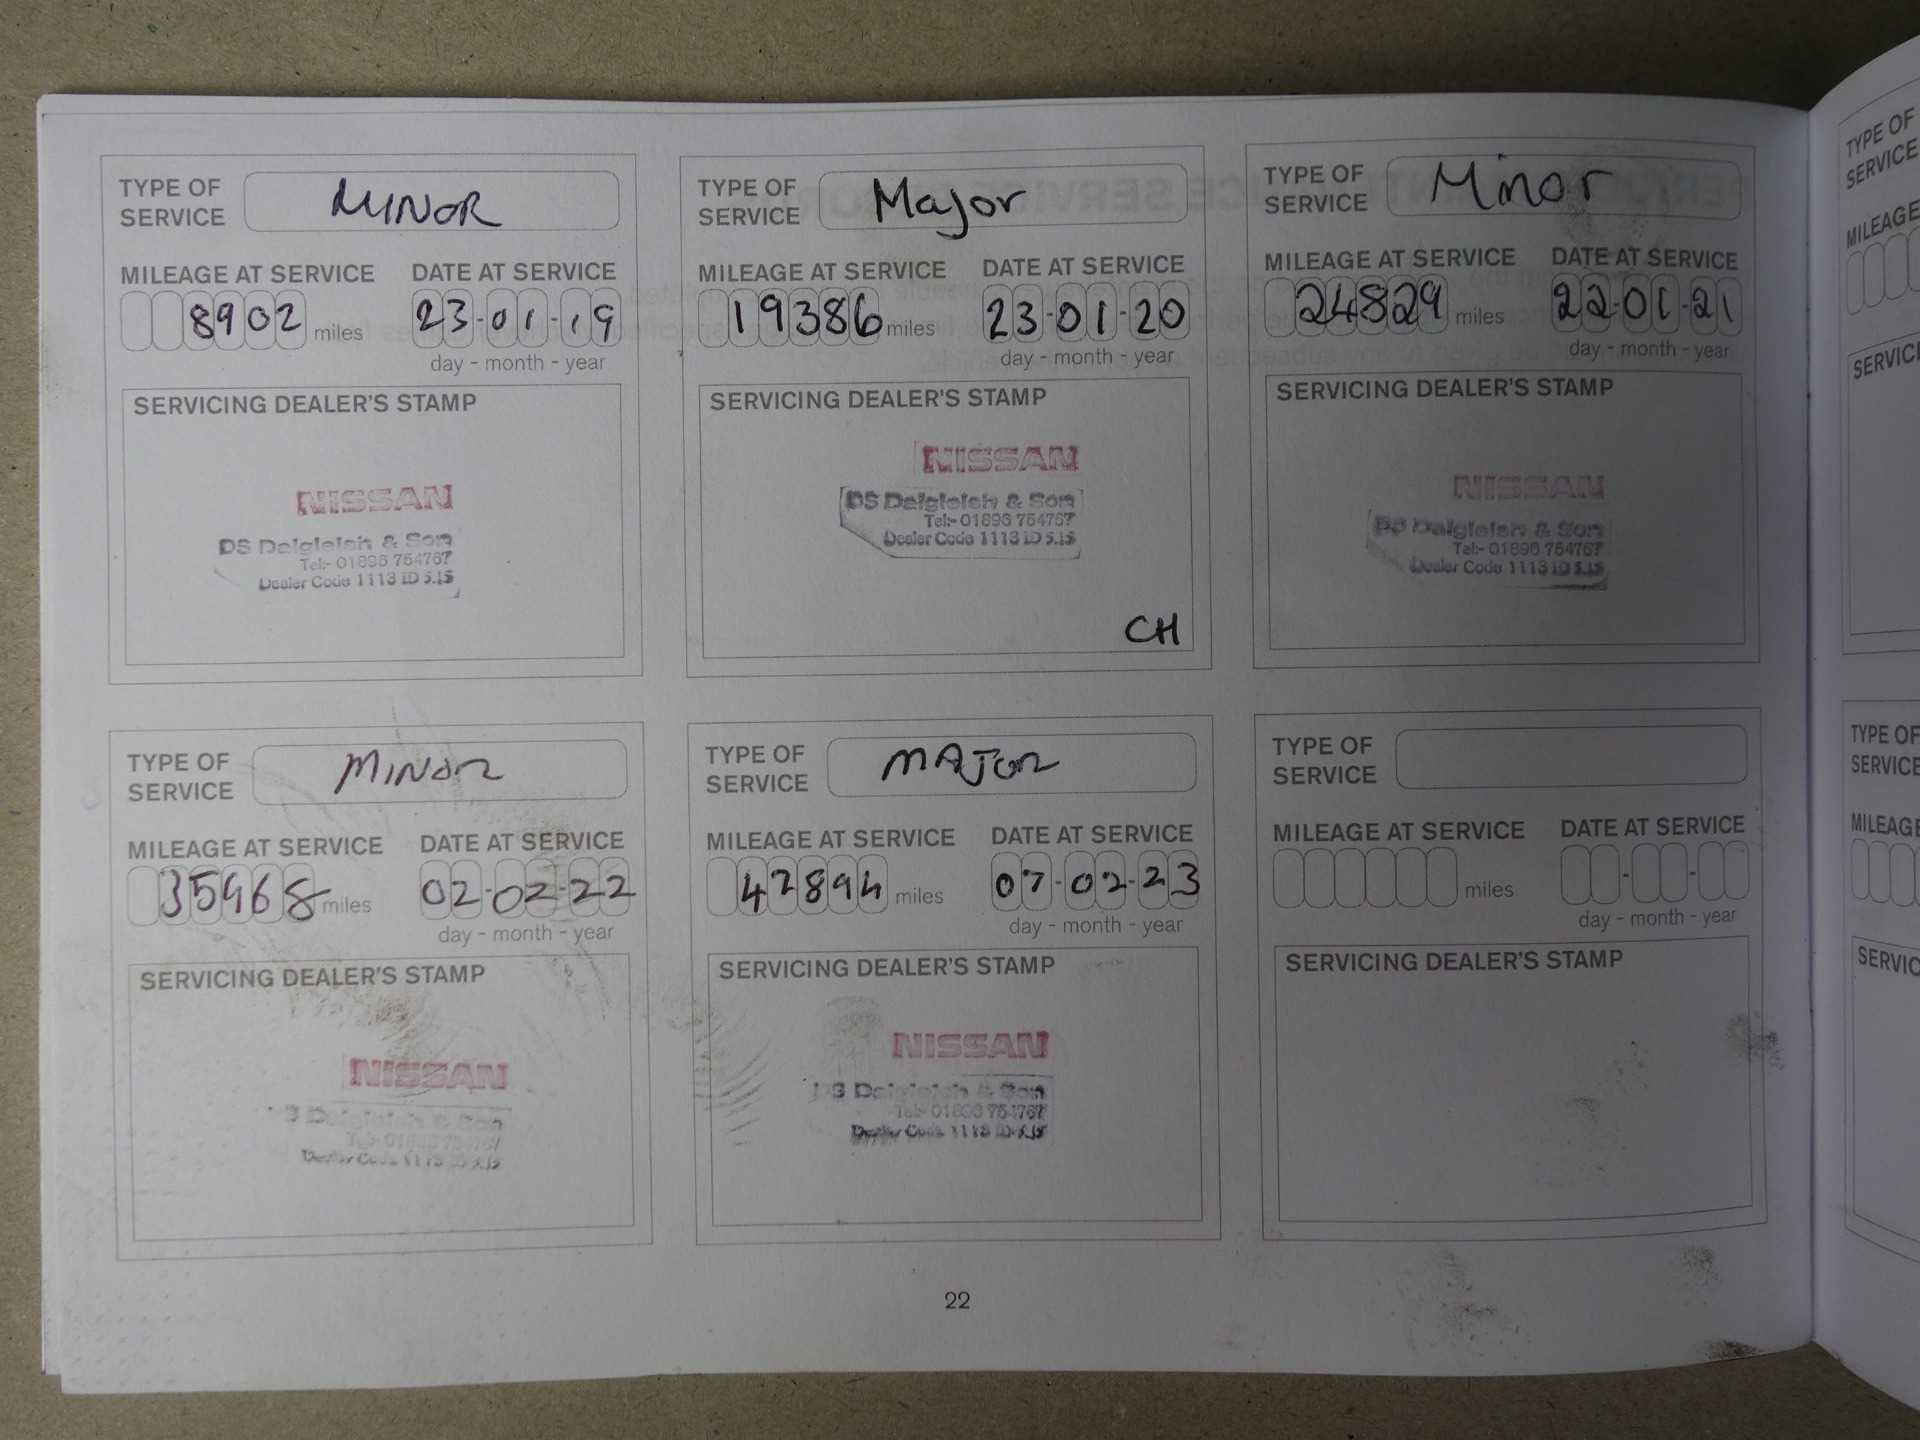 TYPE OF
SERVICE
MINOR
MILEAGE AT SERVICE
8902 miles
DATE AT SERVICE
23-01-19
day - month - year
SERVICING DEALER'S STAMP
NISSAN
DS Dalgleish & Son
Tel:- 01896 754767
Dealer Code 1113 ID 5.15
TYPE OF
SERVICE
Major
MILEAGE AT SERVICE
19386 miles
DATE AT SERVICE
23-01-20
day - month - year
SERVICING DEALER'S STAMP
NISSAN
DS Dalgleish & Son
Tel:- 01896 754767
Dealer Code 1113 ID 5.15
CH
TYPE OF
SERVICE
Minor
MILEAGE AT SERVICE
24829 miles
DATE AT SERVICE
22-01-21
day - month - year
SERVICING DEALER'S STAMP
NISSAN
DS Dalgleish & Son
Tel:- 01896 754767
Dealer Code 1113 ID 5.15
TYPE OF
SERVICE
MINOR
MILEAGE AT SERVICE
35468 miles
DATE AT SERVICE
02-02-22
day - month - year
SERVICING DEALER'S STAMP
NISSAN
DS Dalgleish & Son
Tel:- 01896 754767
Dealer Code 1113 ID 5.15
TYPE OF
SERVICE
MAJOR
MILEAGE AT SERVICE
42894 miles
DATE AT SERVICE
07-02-23
day - month - year
SERVICING DEALER'S STAMP
NISSAN
DS Dalgleish & Son
Tel:- 01896 754767
Dealer Code 1113 ID 5.15
TYPE OF
SERVICE
MILEAGE AT SERVICE
miles
DATE AT SERVICE
day - month - year
SERVICING DEALER'S STAMP
22
TYPE OF
SERVICE
MILEAGE
TYPE OF
SERVICE
MILEAGE